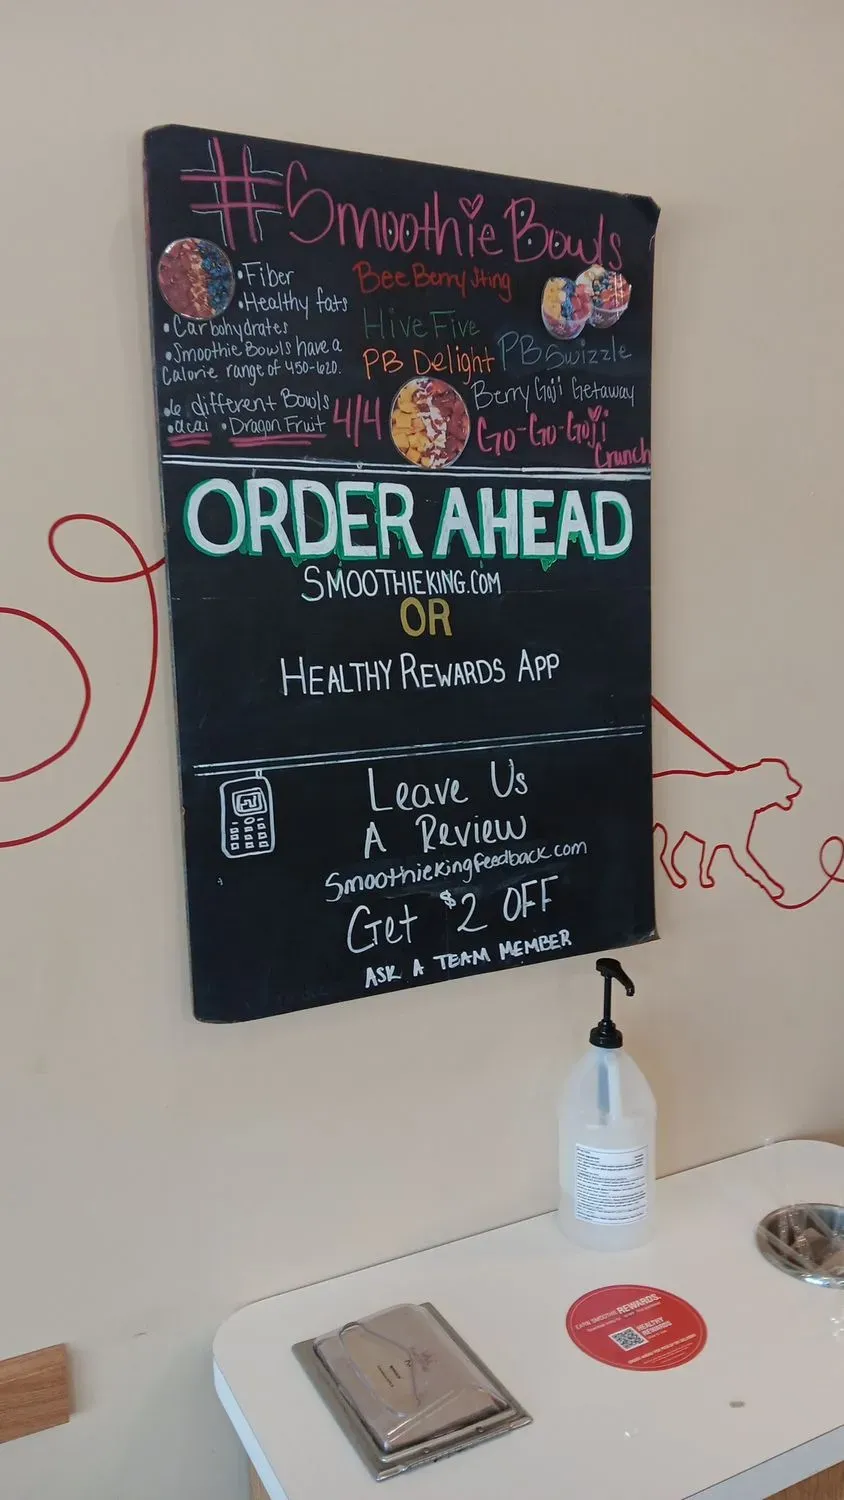 #SmoothieBowls
•Fiber
•Healthy fats
•Carbohydrates
•Smoothie Bowls have a
Calorie range of 450-620.
•6 different Bowls
•acai •Dragon Fruit
4/4
BeeBerry Sting
HiveFive
PB Delight
PB Swizzle
Berry Goji Getaway
Go-Go-Goji
Crunch
ORDER AHEAD
SMOOTHIEKING.COM
OR
HEALTHY REWARDS APP
Leave Us
A Review
Smoothiekingfeedback.com
Get $2 OFF
ASK A TEAM MEMBER
EARN SMOOTHIE REWARDS.
HEALTHY
REWARDS